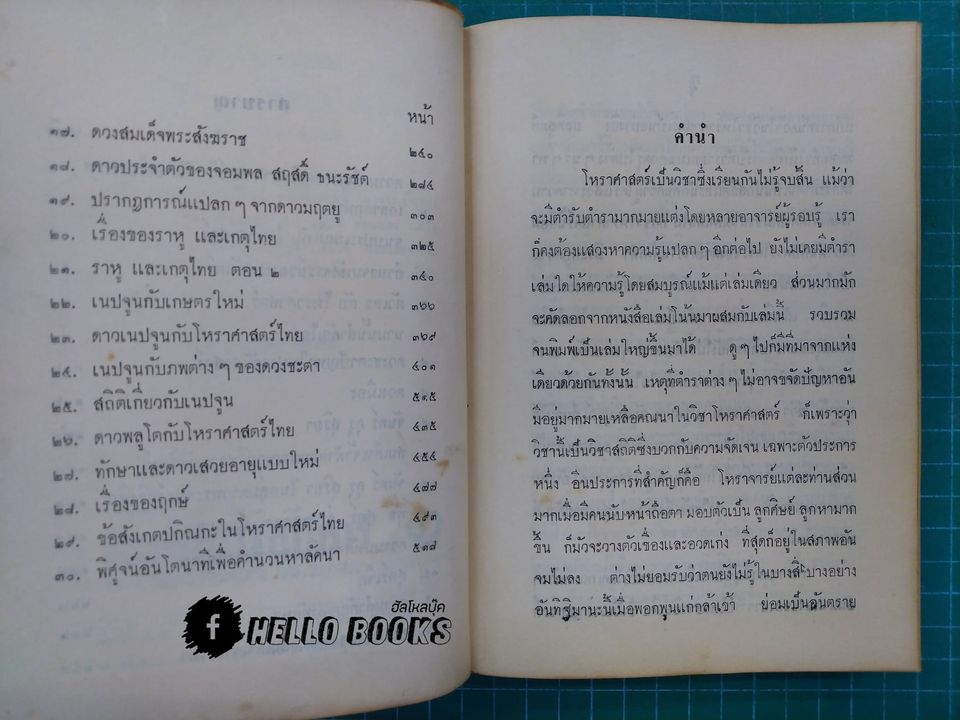 หน้า
๑๗. ดวงสมเด็จพระสังฆราช ๒๔๐
๑๘. ดาวประจำตัวของจอมพล สฤสดิ์ ธนะรัชต์ ๒๘๔
๑๙. ปรากฏการณ์แปลก ๆ จากดาวมฤตยู ๓๐๓
๒๐. เรื่องของราหู และเกตุไทย ๓๒๕
๒๑. ราหู และเกตุไทย ตอน ๒ ๓๔๐
๒๒. เนปจูนกับเกษตรใหม่ ๓๖๖
๒๓. ดาวเนปจูนกับโหราศาสตร์ไทย ๓๖๙
๒๔. เนปจูนกับภพต่าง ๆ ของดวงชะตา ๔๐๑
๒๕. สถิติเกี่ยวกับเนปจูน
๒๖. ดาวพลูโตกับโหราศาสตร์ไทย ๔๓๕
๒๗. ทักษาและดาวเสวยอายุแบบใหม่ ๔๕๔
๒๘. เรื่องของฤกษ์ ๔๗๗
๒๙. ข้อสังเกตปกิณกะในโหราศาสตร์ไทย ๔๙๓
๓๐. พิศูจน์อันโตนาทีเพื่อคำนวนหาลัคนา ๕๑๘
ฮัลโหลบุ๊ค
f HELLO BOOKS
คำนำ
โหราศาสตร์เป็นวิชาซึ่งเรียนกันไม่รู้จบสิ้น แม้ว่า
จะมีตำรับตำรามากมายแต่งโดยหลายอาจารย์ผู้รอบรู้ เรา
ก็คงต้องแสวงหาความรู้แปลก ๆ อีกต่อไป ยังไม่เคยมีตำรา
เล่มใดให้ความรู้โดยสมบูรณ์แม้แต่เล่มเดียว ส่วนมากมัก
จะคัดลอกจากหนังสือเล่มโน้นมาผสมกับเล่มนี้ รวบรวม
จนพิมพ์เป็นเล่มใหญ่ขึ้นมาได้ ดู ๆ ไปก็มีที่มาจากแห่ง
เดียวด้วยกันทั้งนั้น เหตุที่ตำราต่าง ๆ ไม่อาจขจัดปัญหาอัน
มีอยู่มากมายเหลือคณนาในวิชาโหราศาสตร์ ก็เพราะว่า
วิชานี้เป็นวิชาสถิติซึ่งบวกกับความจัดเจน เฉพาะตัวประการ
หนึ่ง อีกประการที่สำคัญก็คือ โหราจารย์แต่ละท่านส่วน
มากเมื่อมีคนนับหน้าถือตา มอบตัวเป็น ลูกศิษย์ ลูกหามาก
ขึ้น ก็มัวจะวางตัวเขื่องและอวดเก่ง ที่สุดก็อยู่ในสภาพอัน
จมไม่ลง ต่างไม่ยอมรับว่าตนยังไม่รู้ในบางสิ่งบางอย่าง
อันทิฐิมานะนี้เมื่อพอกพูนแก่กล้าเข้า ย่อมเป็นอันตราย